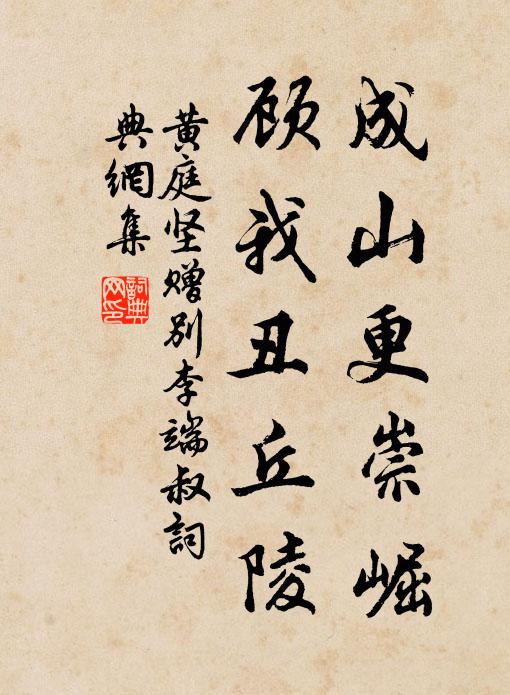 成山更崇崛
顾我丑丘陵
黄庭坚赠别李端叔詞
典網集
詞典
网印